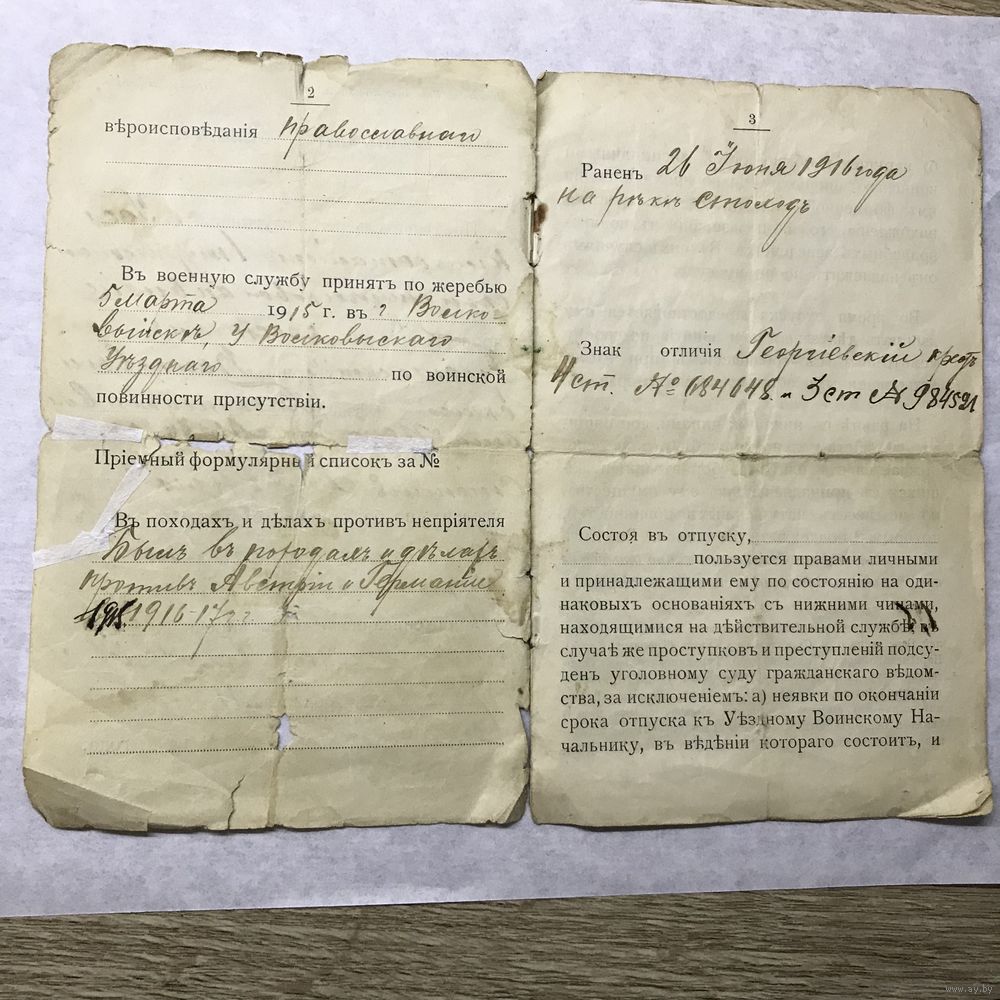 2
вѣроисповѣданія православнаго
Въ военную службу принятъ по жеребью
5 марта 1915 г. въ г Волко-
выйскѣ, у Волковыскаго
Уѣзднаго по воинской
повинности присутствіи.
Пріемный формулярный списокъ за №
Въ походахъ и дѣлахъ противъ непріятеля
Былъ въ походахъ и дѣлахъ
противъ Австріи и Германіи
1915 1916-17 гг
3
Раненъ 26 Іюня 1916 года
на рѣкѣ Стоходъ
Знак отличія Георгіевскій крестъ
4 ст. № 684648. и 3 ст № 984521
Состоя въ отпуску,
пользуется правами личными
и принадлежащими ему по состоянію на оди-
наковыхъ основаніяхъ съ нижними чинами,
находящимися на дѣйствительной службѣ, въ
случаѣ же проступковъ и преступленій подсу-
денъ уголовному суду гражданскаго вѣдом-
ства, за исключеніемъ: а) неявки по окончаніи
срока отпуска къ Уѣздному Воинскому На-
чальнику, въ вѣдѣніи котораго состоитъ, и
www.ay.by